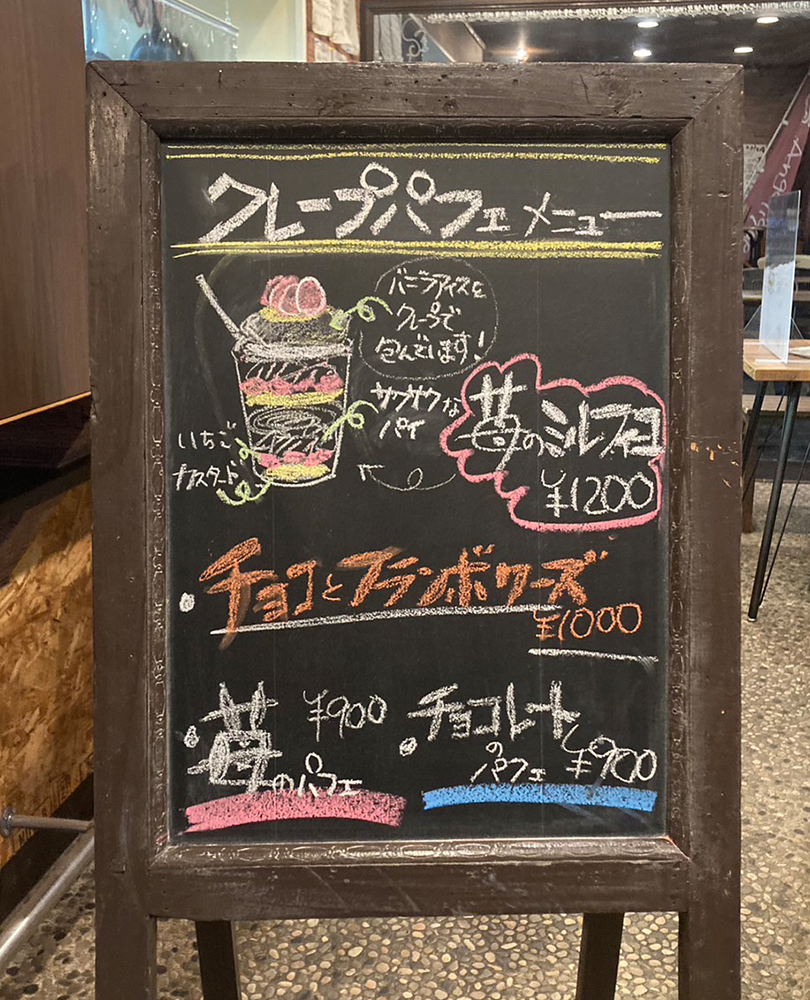 クレープパフェ メニュー
バニラアイスを
クレープで
包んでいます!
サクサクな
パイ
いちご
カスタード
苺のミルフィユ
¥1200
チョコとフランボワーズ
¥1000
苺のパフェ
¥900
チョコレート
パフェ ¥900